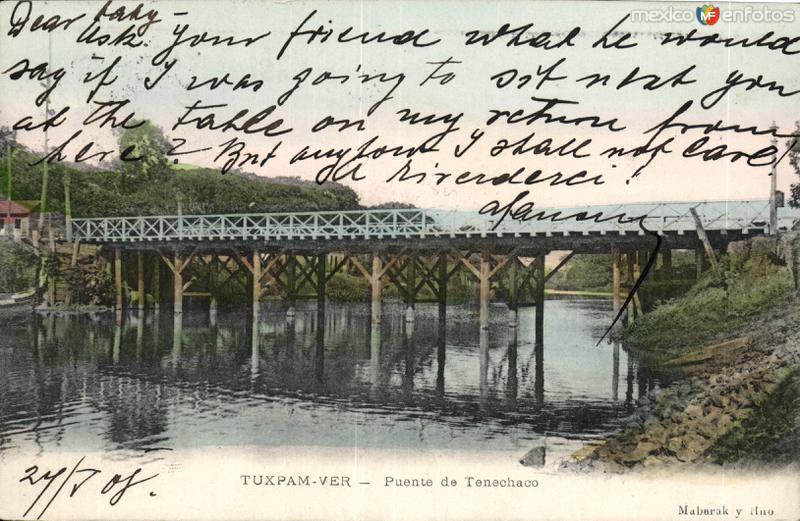 mexicoenfotos
Dear baby -
Ask your friend what he would
say if I was going to sit next you
at the table on my return from
here? But anyhow I shall not care!
A riverderci!
TUXPAM-VER — Puente de Tenechaco
Mabarak y Hno